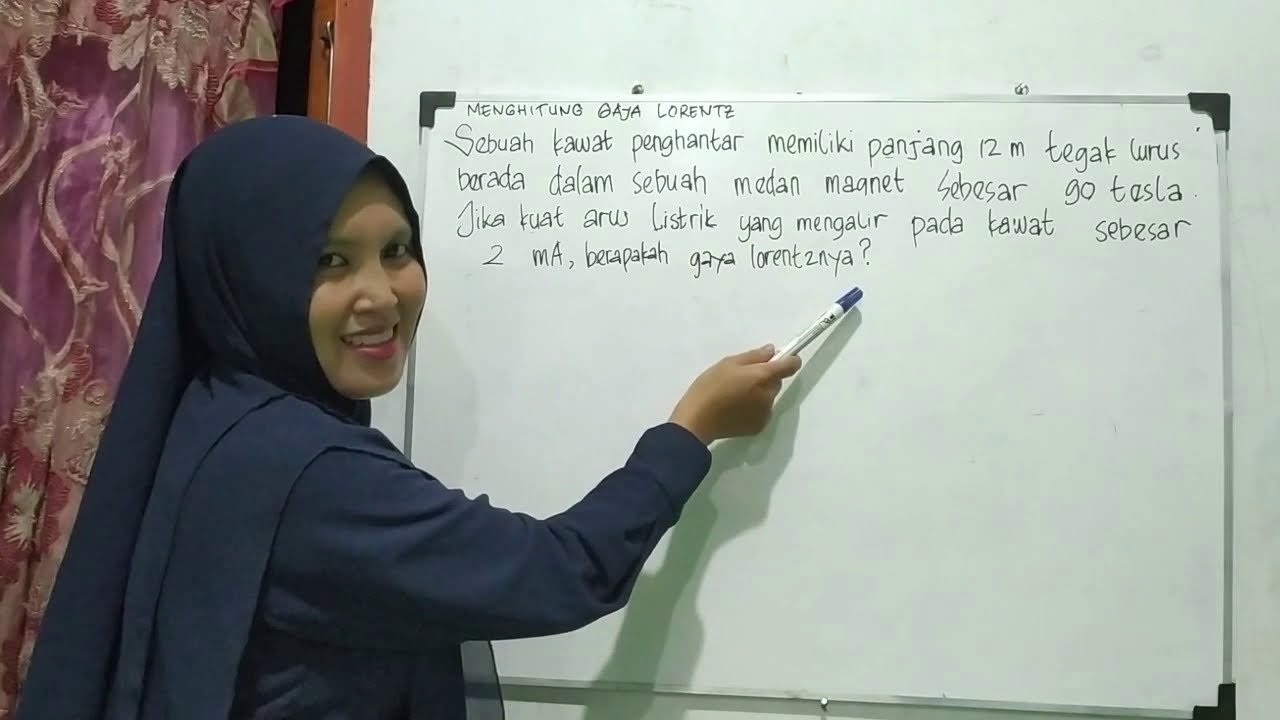 MENGHITUNG GAJA LORENTZ
Sebuah kawat penghantar memiliki panjang 12 m tegak lurus
berada dalam sebuah medan magnet sebesar 90 tesla.
Jika kuat arus listrik yang mengalir pada kawat sebesar
2 mA, berapakah gaya lorentznya?